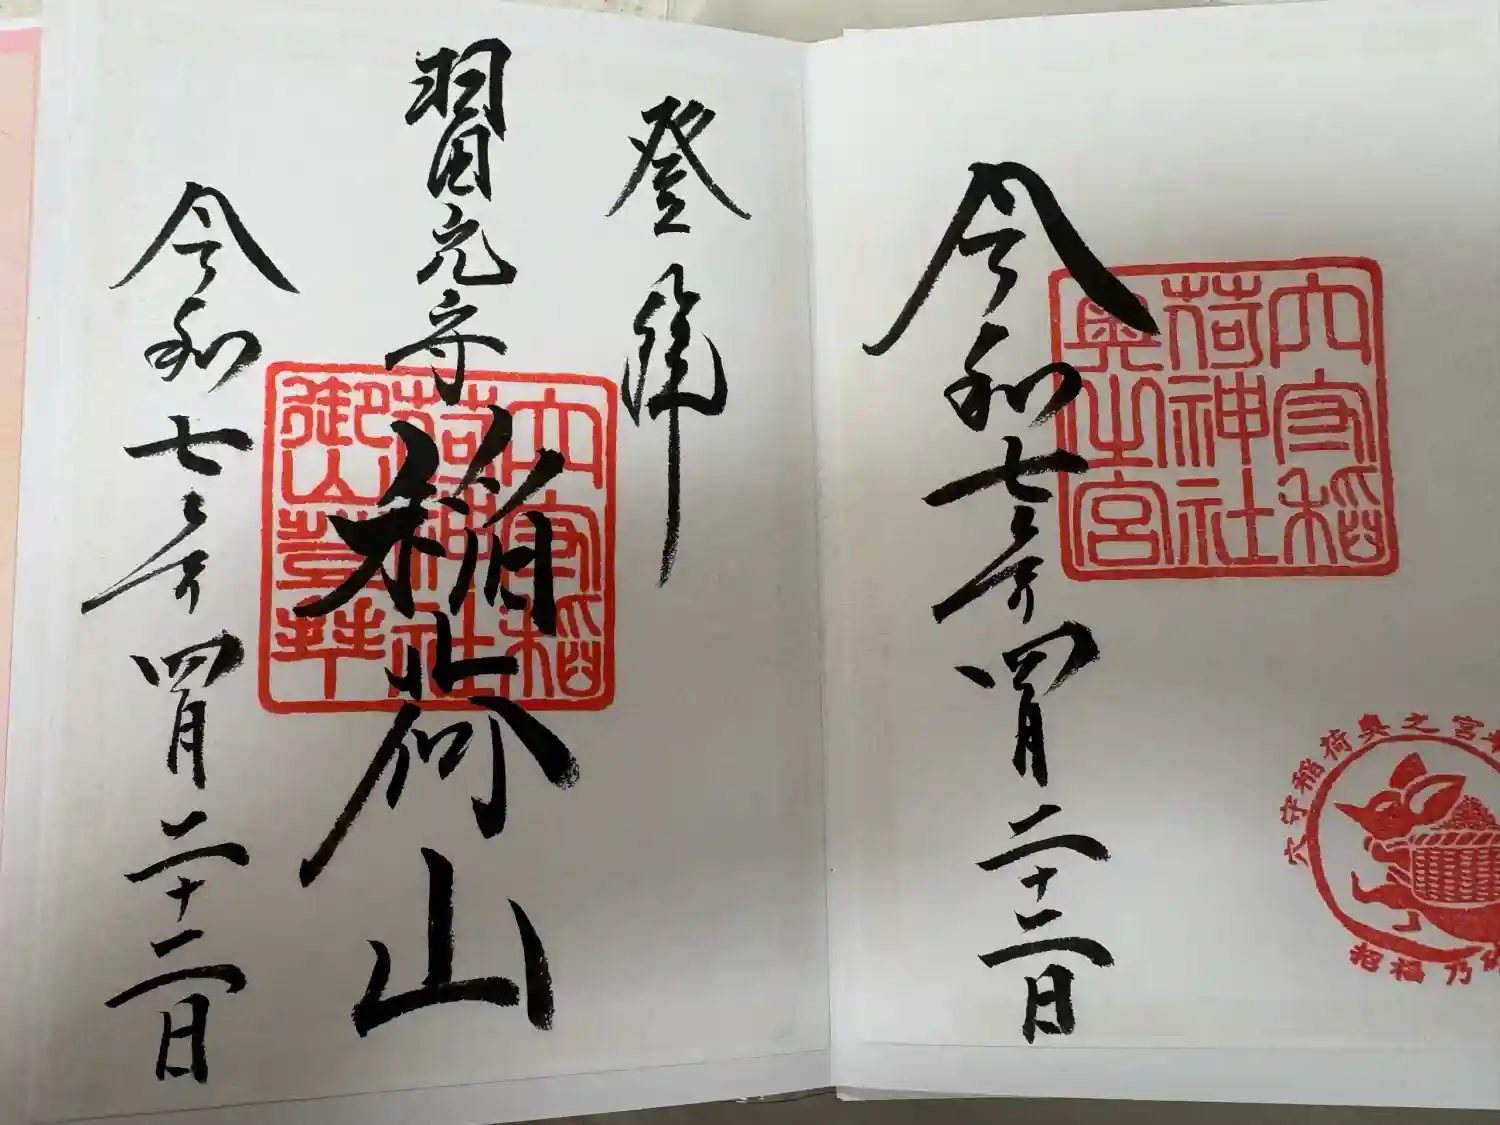 穴守稲
荷神社
奥之宮
穴守稲荷奥之宮
招福乃
令和七年四月二十二日
登拝
羽田穴守稲荷山
穴守稲
荷神社
御山登拝
令和七年四月二十二日